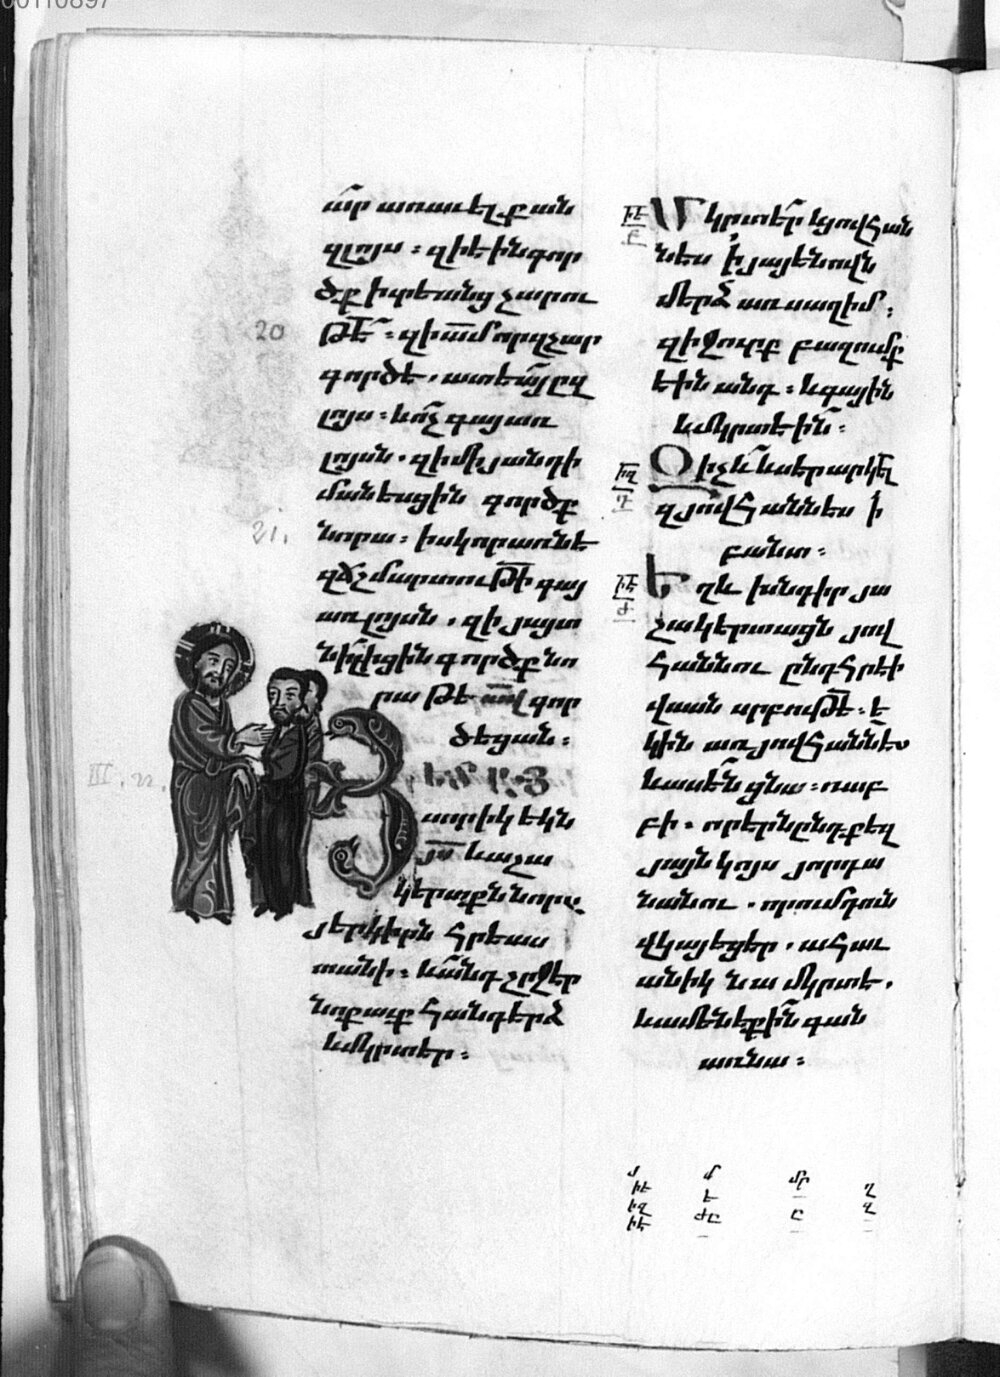 00110897
մ̅ր առաւել քան
զլոյս։ զի էին գոր
ծք իւրեանց չարու
20
թե̅։ զի ա̅մ որ զչար
գործէ, ատեայ զզ
լոյս։ և ո̅չ գայ առ
լոյսն. զի մի յանդի
մանեսցին գործք
21.
նորա։ իսկ որ առնէ
զճշմարտութի̅ գայ
առ լոյսն, զի յայտ
նի լիցին գործք նո
րա թե ա̅վ գոր
ծեցան։
III. 22.
Յ
ետ այսորիկ եկն
յս̅ և աշա
կերտքն նորա
յերկիրն հրեաս
տանի։ և ա̅նդ շրջէր
նոքաւք հանդերձ
և մկրտէր։
իե
բ
Մկրտէր և յովհան
նէս ի յայենովն
մերձ առ սաղիմ։
զի ջուրք բազումք
էին անդ։ և գային
և մկրտէին։
իզ
դ
Զի չև ևս էր արկել
զյովհաննէս ի
բանտ։
իէ
ժ
Եղև խնդիր յա
շակերտացն յով
հաննու ընդ հրէի
վասն սրբութե̅։ ե
կին առ յովհաննէս
և ասեն ցնա։ ռաբ
բի. որ էրն ընդ քեզ
յայնկոյս յորդա
նանու. որում դուն
վկայեցեր. ահաւ
անիկ նա մկրտէ.
և ամենեքին գան
առ նա։
յ մ մր ղ
իե ե ը զ
իզ ժը
իէ